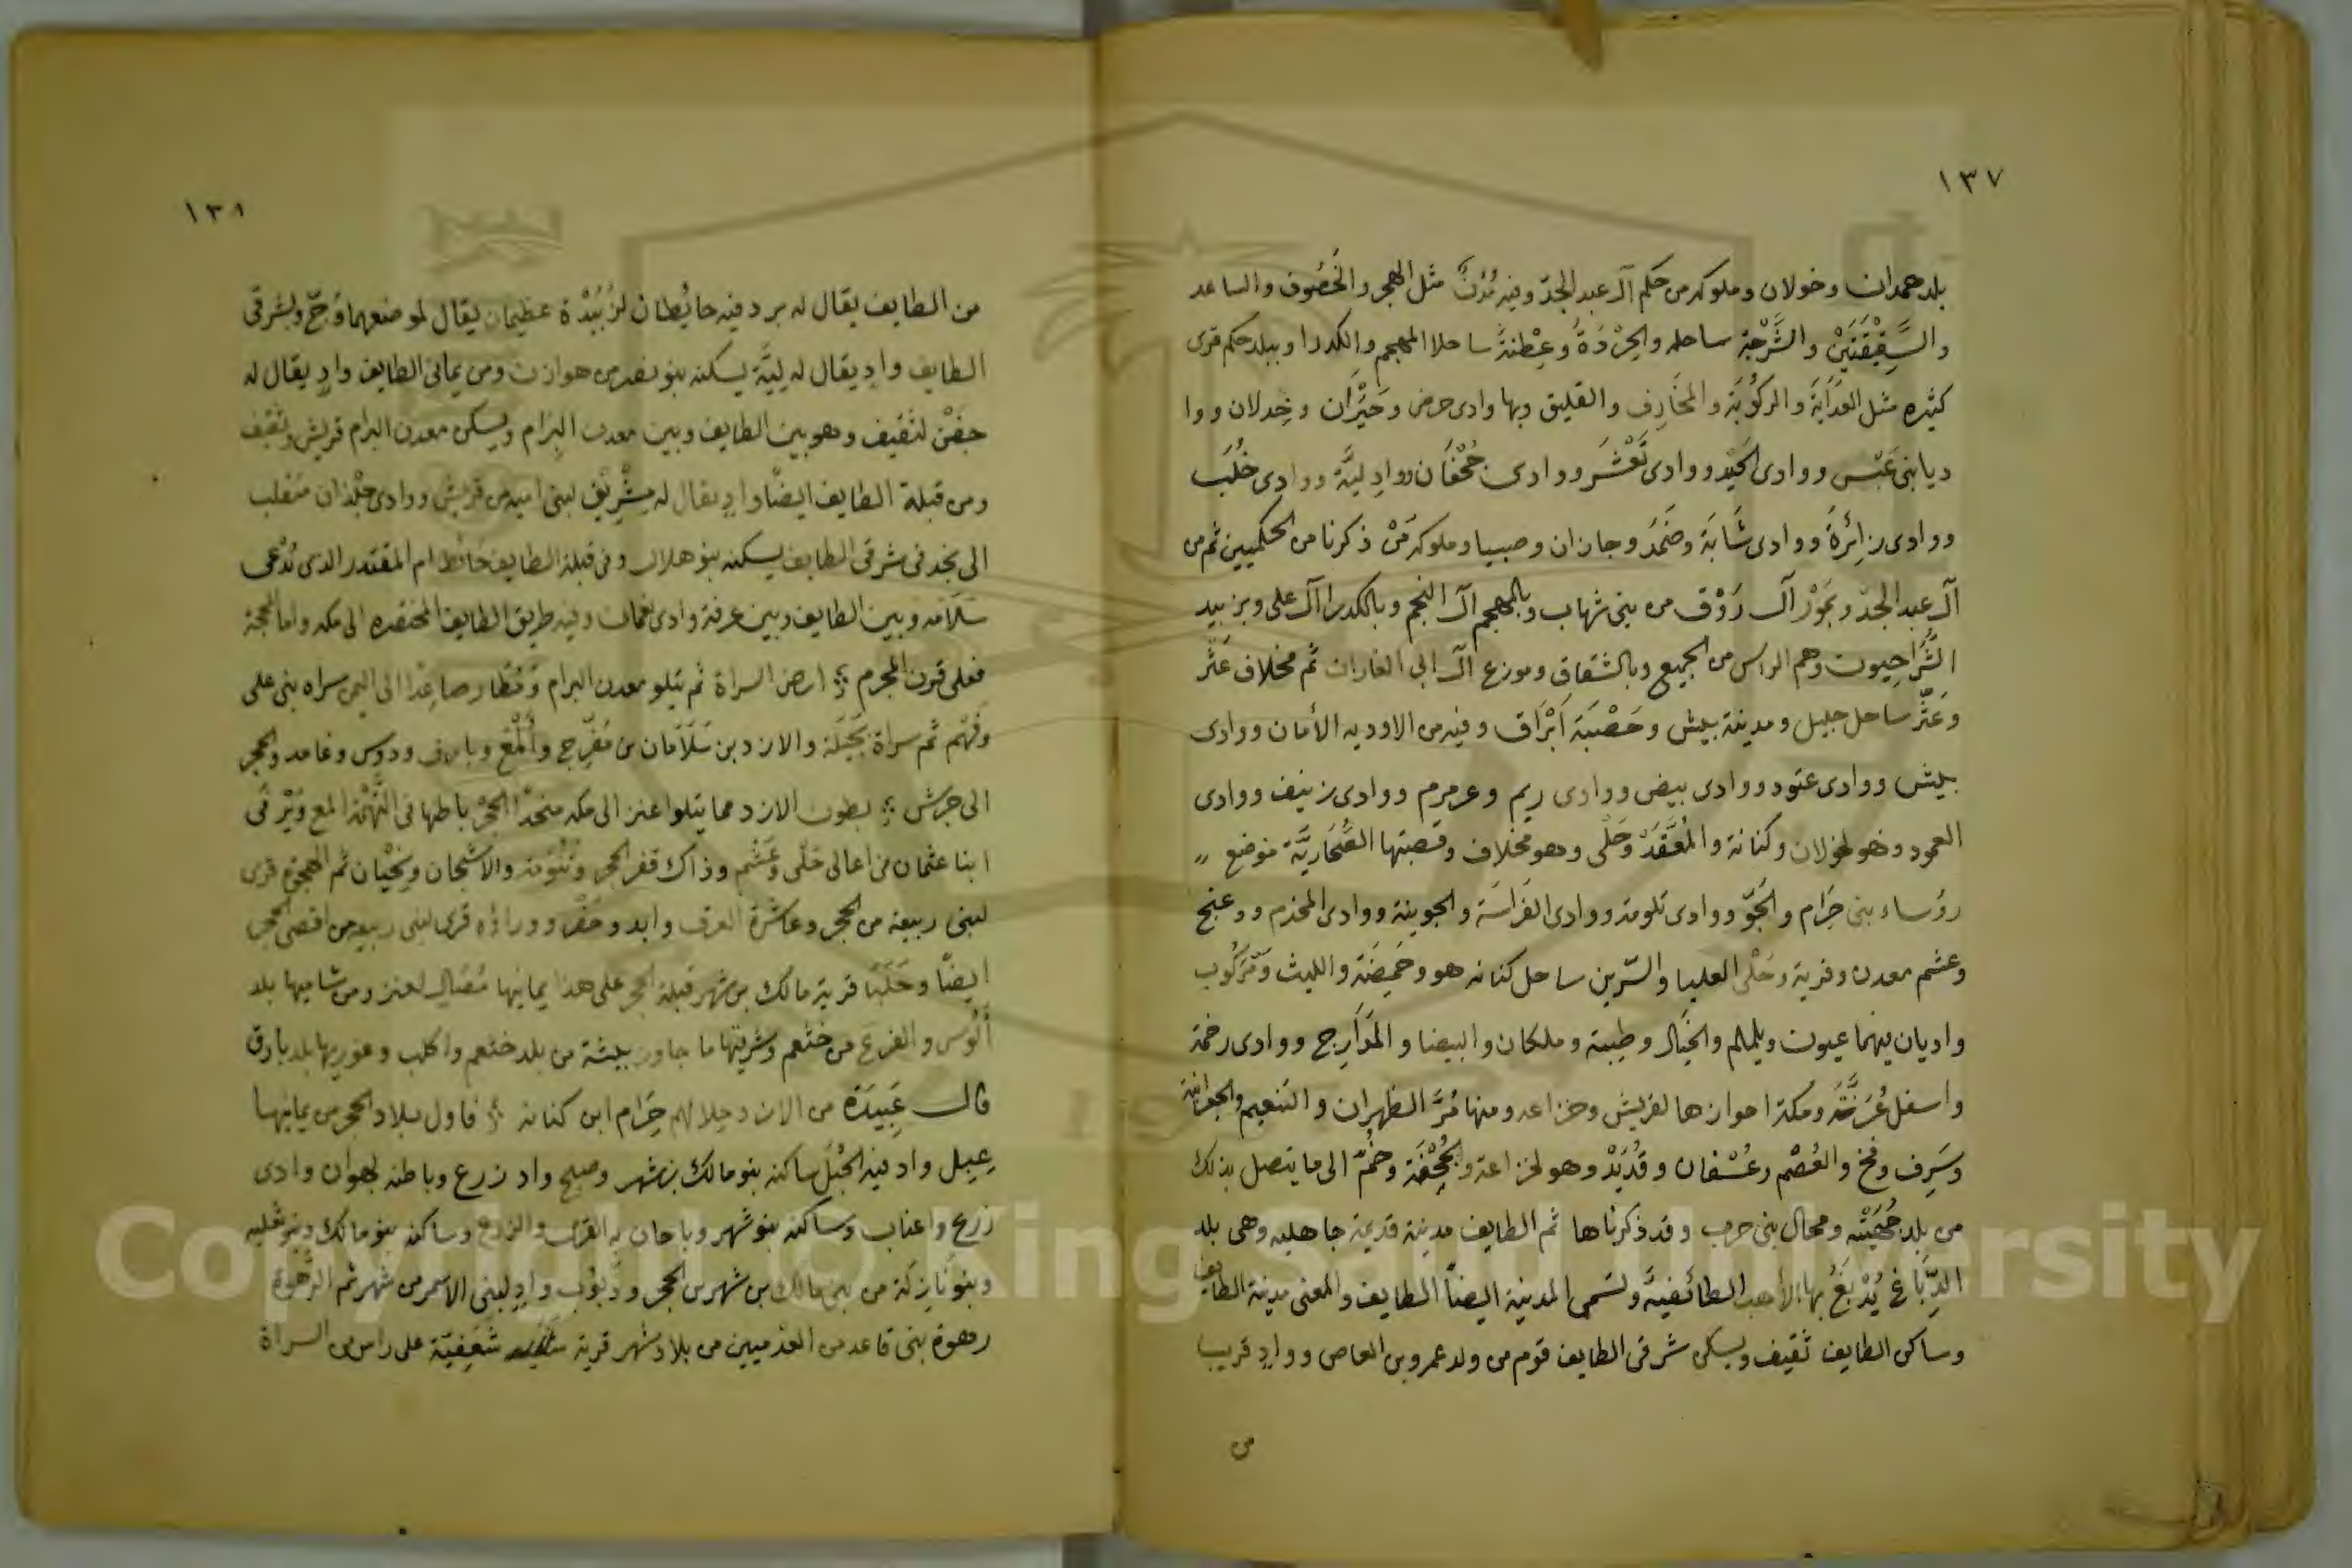 ١٣٧
بلد همدان وخولان وملوكه من حكم آل عبد الجدّ وفيه مُدُنٌ مثل الهجر والخَصُوف والساعد
والسَّقِيْفَتَيْن والشَّرْجَة ساحله والحِرْدَةُ وعِطْنَةُ ساحلا المهجم والكدرا وببلد حكم قرى
كثيره مثل العَدَايَة والركُوبَة والمخَارِف والقليق وبها وادى حرض وحَيْرَان وخِدلان ووا
ديا بنى عَبْس ووادى الحَيْد ووادى تَعْشَر ووادى جُحْفَان ووادِ لِيَّة ووادى خُلُب
ووادى زائِرَةَ ووادى شَابَة وضَمَد وجازان وصبيا وملوكه مَنْ ذكرنا من الحكميين ثم من
آل عبد الجدّ وبمَوْر آل رَوْق من بنى شهاب وبالمهجم آل النجم وبالكدرا آل على وبزبيد
الشُّرَاحِيون وهم الراس من الجميع وبالشقاق وموزع آل ابى الغارات ثم مخلاف عَثَّر
وعَثَّر ساحل جليل ومدينة بيش وحَصْبَة اَبْرَاق وفيه من الاوديه الأمان ووادى
بيش ووادى عتود ووادى بيض ووادى ريم وعرمرم ووادى زنيف ووادى
العمود وهو لخولان وكنانة والمُعَقَّدْ وحَلْى وهو مخلاف وقصبتها الصُّحَارِيَّة موضع
رؤساء بنى حَرَام والجَوّ ووادى تلومة ووادى الفَرَاسَة والجوينة ووادى المحزم وَدعنج
وعشم معدن وقرية وحَلْى العليا والسّرين ساحل كنانه هو وحَمِضَة والليث ومَرْكُوب
واديان فيهما عيون ويلملم والخيال وطِبية وملكان والبيضا والمَدَارِج ووادى رخمة
واسفل عُرَنَة ومكة احوازها لقريش وخزاعه ومنها مُرّ الظهران والتنعيم والجعرانة
وسَرِف وفخ والعُصْم وعُسْفان وقُدَيْد وهو لخزاعة والجُحْفَة وخُمّ الى ما يتصل بذلك
من بلد جُهَيْنَة ومحال بنى حرب وقد ذكرناها ثم الطايف مدينة قديمة جاهليه وهى بلد
الدِّبَاغ يُدْبَغُ بها الأهب الطائفيّة وتسمى المدينة ايضاً الطايف والمعنى مدينة الطايف
وساكن الطايف ثقيف ويسكن شرقى الطايف قوم من ولد عمرو بن العاص ووادٍ قريب
من
١٣٨
من الطايف يقال له برد فيه حائطان لزُبَيْدة عظيمان يقال لموضعهما وَجّ وبشرقى
الطايف وادٍ يقال له لِيَّة يسكنه بنو نصر من هوازن ومن يمانى الطايف وادٍ يقال له
جَفْن لثقيف وهو بين الطايف وبين معدن البرَام ويسكن معدن البرام قريش وثقيف
ومن قبلة الطايف ايضًا وادٍ يقال له مشْرِيْق لبنى اميه من قريش ووادى جلْذان منقلب
الى نجد فى شرقى الطايف يسكنه بنو هلال وفى قبلة الطايف حائط ام المقتدر الذى يُدْعى
سَلَامَه وبين الطايف وبين عرفة وادى نعمان وفيه طريق الطايف المختصره الى مكه واما المحجة
فعلى قرن المحرم ارض السراة ثم يتلو معدن البرام ومُطَار صاعِدًا الى اليمن سراه بنى على
وفَهْم ثم سراة بَجَيْلَة والازد بن سَلَامَان بن مُفَرّج واَلْمَع وبارق ودوس وغامد والحجر
الى جرش بطون الازد مما يتلوا عنز الى مكه منحدًا الحَجْر باطنها فى التَّهْمَة المع ويَرْفَى
ابنا عثمان من اعالى حَلْى وعَشْم وذاك قفر الحجر وتَنُوْمَة والاشجان ونِحْيَان ثم الجهوة قرى
لبنى ربيعة من الحجر وعاشرة العرق وايد وحَضْر ووراؤه قرى لبنى ربيعه من اقصى الحجر
ايضًا وحَلَبَا قرية مالك بن شهر قبلة الحجر على هذا يمانيها مُصَال لعنز ومن شاميها بلد
أُلُوس والفزع من خثعم وشرقيها ما جاور بيشة من بلد خثعم واكلب وغوريها بلد بارق
قال عَبِيدَة من الازد وحلالهم حَرَام ابن كنانه فاول بلاد الحجر من يمانيها
عِبِل واد فيه الحُبُل ساكنه بنو مالك بن شهر وصبح واد زرع وباطنه لهوان وادى
زرع واعناب وساكنه بنو شهر وباحان به القرى والزرع وساكنه بنو مالك وبنو ثعلبه
وبنو نازلة من بنى مالك بن شهر بن الحجر وذبوب وادٍ لبنى الاسمر من شهر ثم الرهوة
رهوة بنى قاعد من العدميين من بلاد شهر قرية شعفيّة على راس من السراة
Copyright © King Saud University